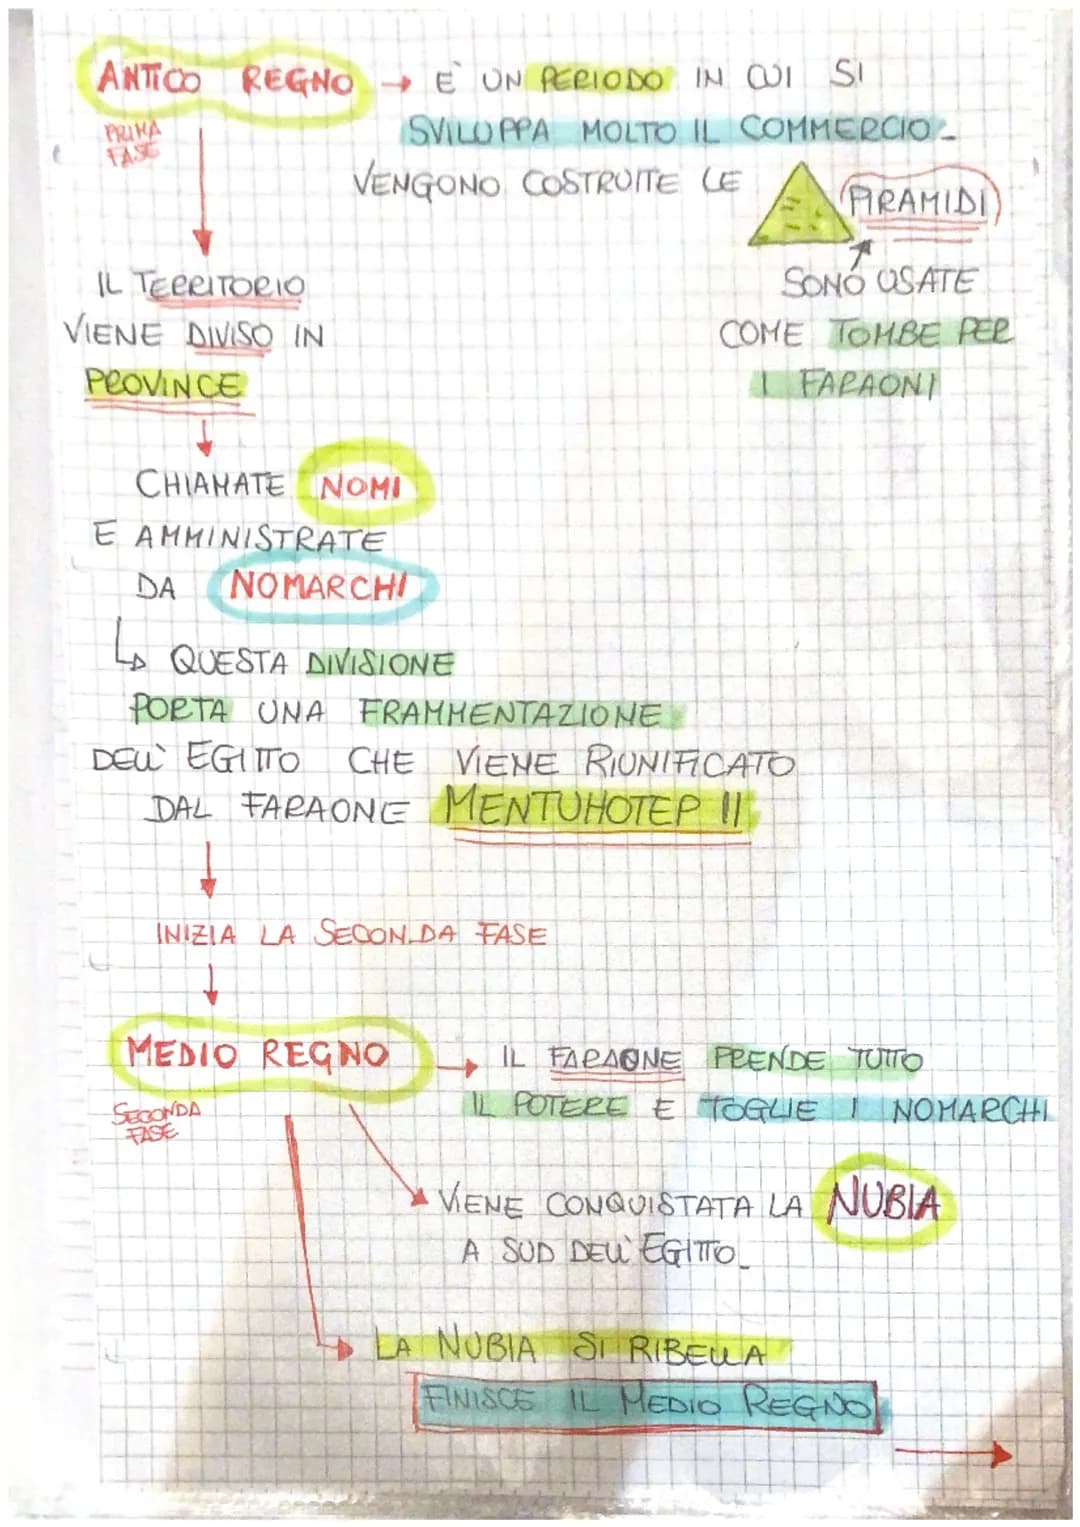 ANTICO REGNO → E' UN PERIODO IN CUI SI
SVILUPPA MOLTO IL COMMERCIO
PRIMA
FASE
VENGONO COSTRUITE LE PIRAMIDI
SONO USATE
COME TOMBE PER
I FARAONI
IL TERRITORIO
VIENE DIVISO IN
PROVINCE
CHIAMATE NOMI
E AMMINISTRATE
DA NOMARCHI
QUESTA DIVISIONE
PORTA UNA FRAMMENTAZIONE
DELL' EGITTO CHE VIENE RIUNIFICATO
DAL FARAONE MENTUHOTEP II
INIZIA LA SECONDA FASE
MEDIO REGNO → IL FARAONE PRENDE TUTTO
IL POTERE E TOGLIE I NOMARCHI
SECONDA
FASE
VIENE CONQUISTATA LA NUBIA
A SUD DELL'EGITTO
LA NUBIA SI RIBELLA
FINISCE IL MEDIO REGNO